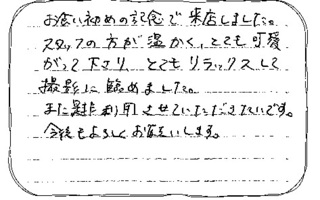 お食い初めの記念で来店しました。
スタッフの方が温かく、とても可愛
がって下さり、とてもリラックスして
撮影に臨めました。
また是非利用させていただきたいです。
今後もよろしくお願いします。